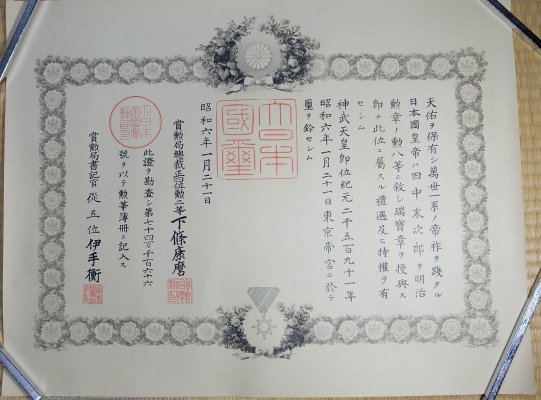 天佑ヲ保有シ萬世一系ノ帝祚ヲ踐タル
日本國皇帝ハ田中末次郎ヲ明治
勲章ノ勲八等ニ敘シ瑞寶章ヲ授與ス
即チ此位ニ屬スル禮遇及ヒ特權ヲ有
セシム
神武天皇即位紀元二千五百九十一年
昭和六年一月二十一日東京帝宮ニ於テ
璽ヲ鈐セシム
大日本國璽
昭和六年一月二十一日
賞勲局總裁正三位勲二等下條康麿
此證ヲ勘査シ第七十四万千百六十六
號ヲ以テ勲等簿冊ニ記入ス
賞勲局書記官從五位伊手衡